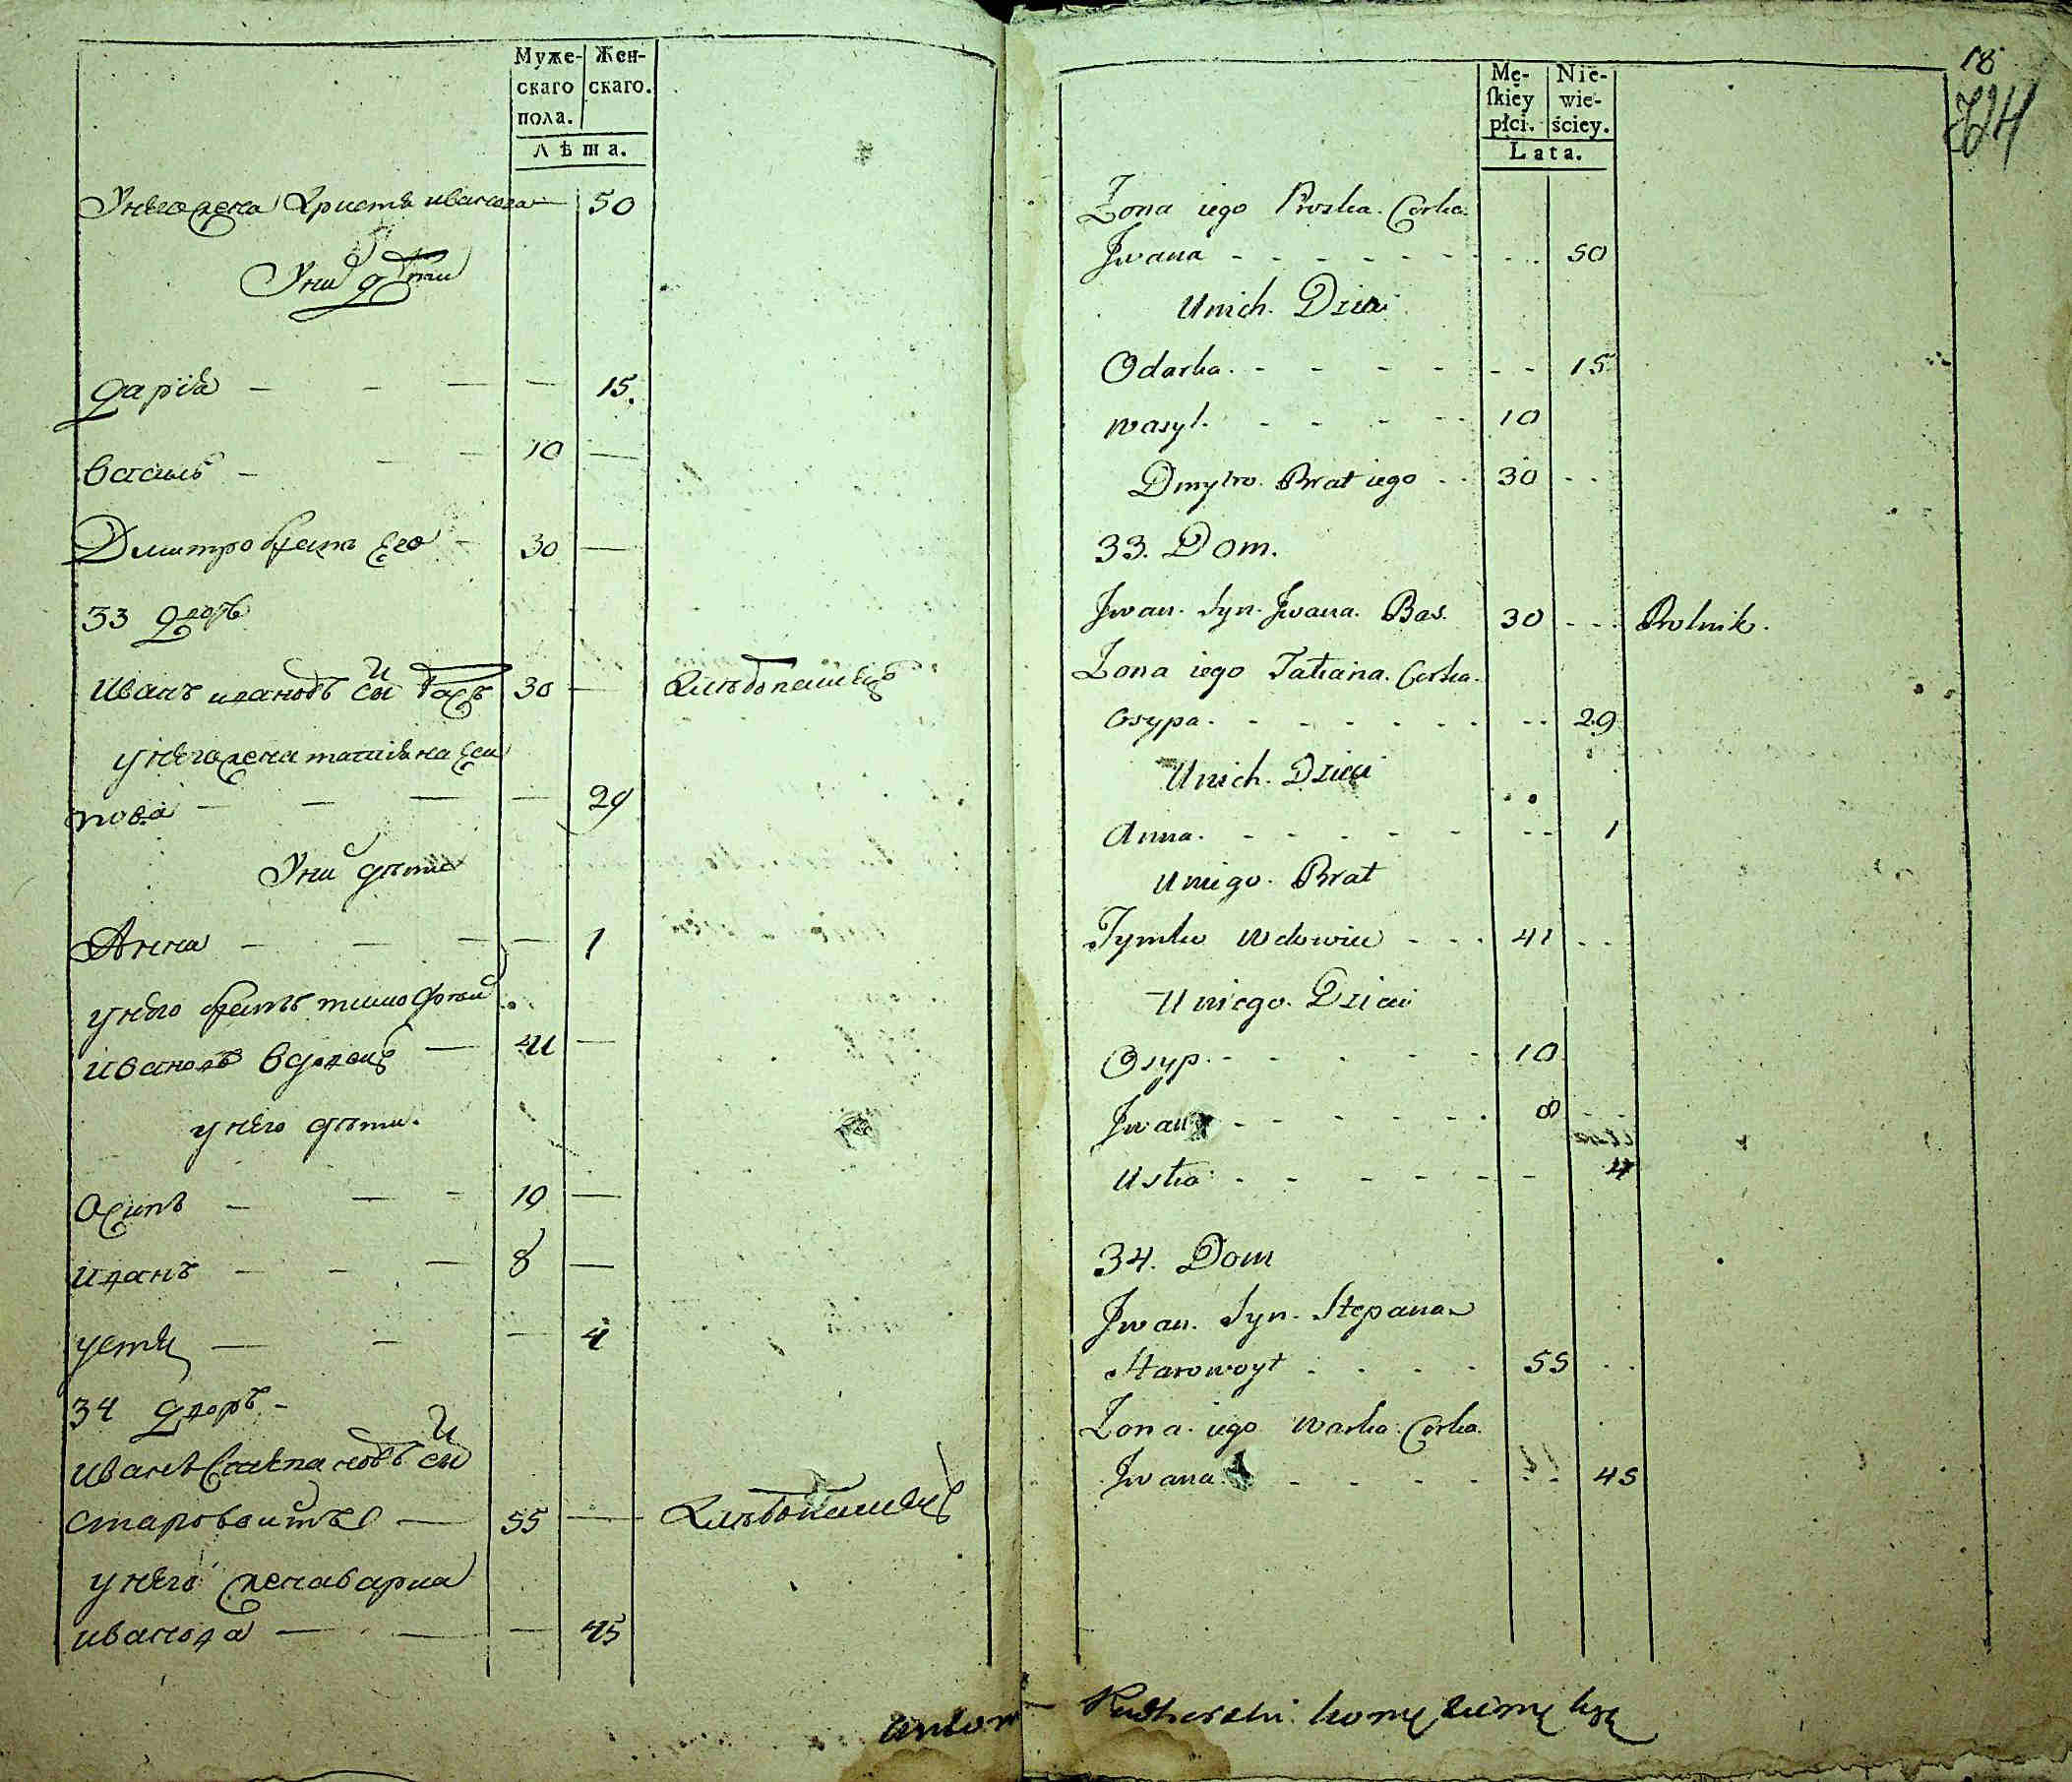 Муже-
скаго
пола.
Жен-
скаго.
Лѣта.
У него жена Христя иванова — 50
У ни дѣти
дария — — — — 15.
василь — — — 10 —
Дмитро братъ его — 30 —
33 дворъ
Иванъ ивановъ сынъ басъ 30 — хлѣбопашецъ
у него жена татияна еси
пова — — — — 29
У ни дѣти
Анна — — — — 1
у него братъ тимофѣй
ивановъ вдовецъ — 41 —
у него дѣти.
Осипъ — — - 10 —
иванъ — — — 8 —
устя — — — 4
34 дворъ -
иванъ степановъ сынъ
старовоитъ — 55 — хлѣбопашецъ
у него жена варка
иванова — — — 45
18
724
Mę-
ſkiéy
płci.
Nie-
wie-
ściey.
Lata.
Zona iego Proska. Corka.
Jwana - - - - - - - - 50
Unich. Dzieci
Odarka. - - - - - - - 15
wasyl. - - - - - 10
Dmytro. Brat iego - - 30 - -
33. Dom.
Jwan. Syn. Jwana. Bas. 30 - - - Rolnik.
Zona iego Tatiana. Corka.
Osypa. - - - - - - - - - 29
Unich. Dzieci
Anna. - - - - - - - - 1
Uniego. Brat
Tymko Wdowiec - - - 41 - -
Uniego. Dzieci
Osyp. - - - - - - 10
Jwan - - - - - - 8 - -
Usta - - - - - - - 4
34. Dom
Jwan. Syn. Stepana
Starowoyt - - - - 55 - -
Zona. iego Warka. Corka.
Jwana. - - - - - - - 45